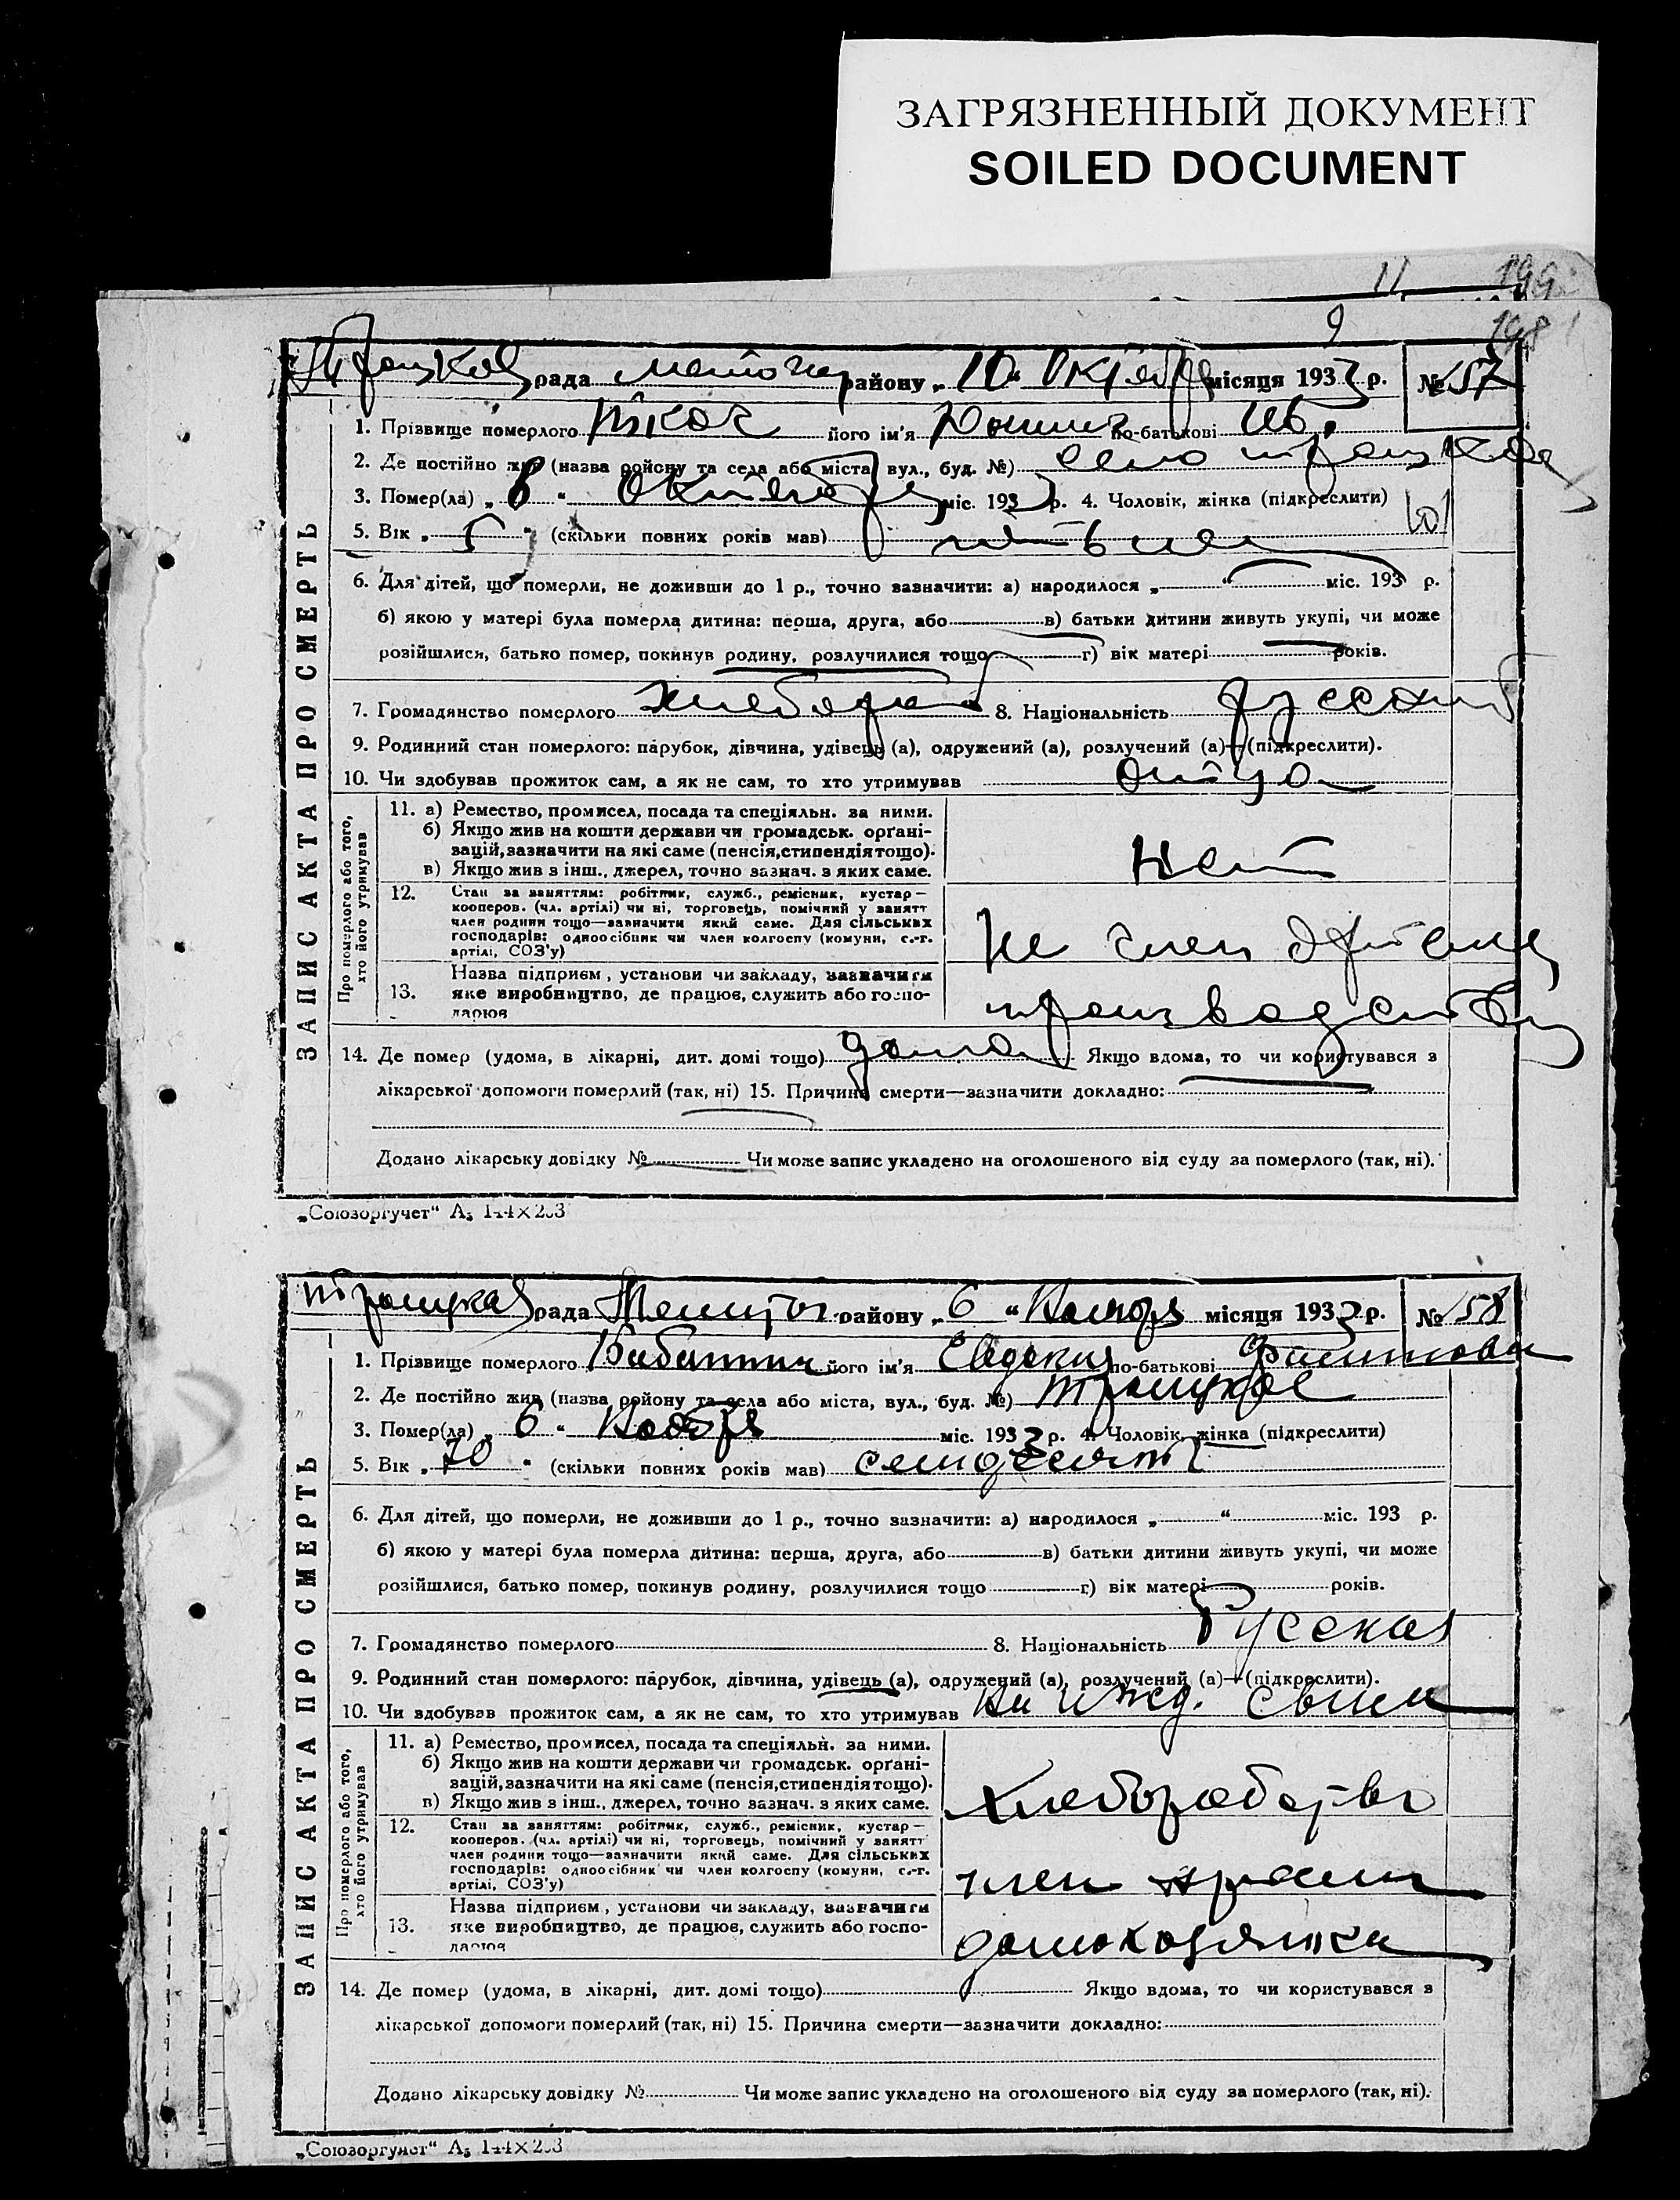 ЗАГРЯЗНЕННЫЙ ДОКУМЕНТ
SOILED DOCUMENT
11 199
9 198
рада району „10“ Октября місяця 1933 р. № 57
1. Прізвище померлого Ткач його ім'я по-батькові Ив.
2. Де постійно жив (назва району та села або міста, вул., буд. №) село Троицкое
3. Помер(ла) „ “ Октября міс. 1933 р. 4. Чоловік, жінка (підкреслити)
5. Вік „5“ (скільки повних років мав) пять лет
6. Для дітей, що померли, не доживши до 1 р., точно зазначити: а) народилося „ “ міс. 193 р.
б) якою у матері була померла дитина: перша, друга, або в) батьки дитини живуть укупі, чи може
розійшлися, батько помер, покинув родину, розлучилися тощо г) вік матері років.
7. Громадянство померлого 8. Національність русский
9. Родинний стан померлого: парубок, дівчина, удівець (а), одружений (а), розлучений (а)—(підкреслити).
10. Чи здобував прожиток сам, а як не сам, то хто утримував отца
ЗАПИС АКТА ПРО СМЕРТЬ
Про померлого або того, хто його утримував
11. а) Ремество, промисел, посада та спеціяльн. за ними.
б) Якщо жив на кошти держави чи громадськ. орґані-
зацій, зазначити на які саме (пенсія, стипендія тощо).
в) Якщо жив з інш., джерел, точно зазнач. з яких саме.
Нет
12. Стан за заняттям: робітник, служб., ремісник, кустар—
кооперов. (чл. артілі) чи ні, торговець, помічний у занятт
член родини тощо—зазначити який саме. Для сільських
господарів: одноосібник чи член колгоспу (комуни, с.-г.
артілі, СОЗ'у)
Не член артели
13. Назва підприєм, установи чи закладу, зазначити
яке виробництво, де працює, служить або госпо-
дарює
14. Де помер (удома, в лікарні, дит. домі тощо) дома Якщо вдома, то чи користувався з
лікарської допомоги померлий (так, ні) 15. Причина смерти—зазначити докладно:
Додано лікарську довідку № Чи може запис укладено на оголошеного від суду за померлого (так, ні).
„Союзоргучет“ А₅ 144×203
Троицкая рада району „6“ Ноября місяця 1933 р. № 58
1. Прізвище померлого його ім'я Евдокия по-батькові
2. Де постійно жив (назва району та села або міста, вул., буд. №) Троицкое
3. Помер(ла) „6“ Ноября міс. 1933 р. 4. Чоловік, жінка (підкреслити)
5. Вік „70“ (скільки повних років мав) семдесят
6. Для дітей, що померли, не доживши до 1 р., точно зазначити: а) народилося „ “ міс. 193 р.
б) якою у матері була померла дитина: перша, друга, або в) батьки дитини живуть укупі, чи може
розійшлися, батько помер, покинув родину, розлучилися тощо г) вік матері років.
7. Громадянство померлого 8. Національність Русская
9. Родинний стан померлого: парубок, дівчина, удівець (а), одружений (а), розлучений (а)—(підкреслити).
10. Чи здобував прожиток сам, а як не сам, то хто утримував На ижд. сына
ЗАПИС АКТА ПРО СМЕРТЬ
Про померлого або того, хто його утримував
11. а) Ремество, промисел, посада та спеціяльн. за ними.
б) Якщо жив на кошти держави чи громадськ. орґані-
зацій, зазначити на які саме (пенсія, стипендія тощо).
в) Якщо жив з інш., джерел, точно зазнач. з яких саме.
Хлеборобство
12. Стан за заняттям: робітник, служб., ремісник, кустар—
кооперов. (чл. артілі) чи ні, торговець, помічний у занятт
член родини тощо—зазначити який саме. Для сільських
господарів: одноосібник чи член колгоспу (комуни, с.-г.
артілі, СОЗ'у)
член артели
13. Назва підприєм, установи чи закладу, зазначити
яке виробництво, де працює, служить або госпо-
дарює
домохозяйка
14. Де помер (удома, в лікарні, дит. домі тощо) Якщо вдома, то чи користувався з
лікарської допомоги померлий (так, ні) 15. Причина смерти—зазначити докладно:
Додано лікарську довідку № Чи може запис укладено на оголошеного від суду за померлого (так, ні).
„Союзоргучет“ А₅ 144×203